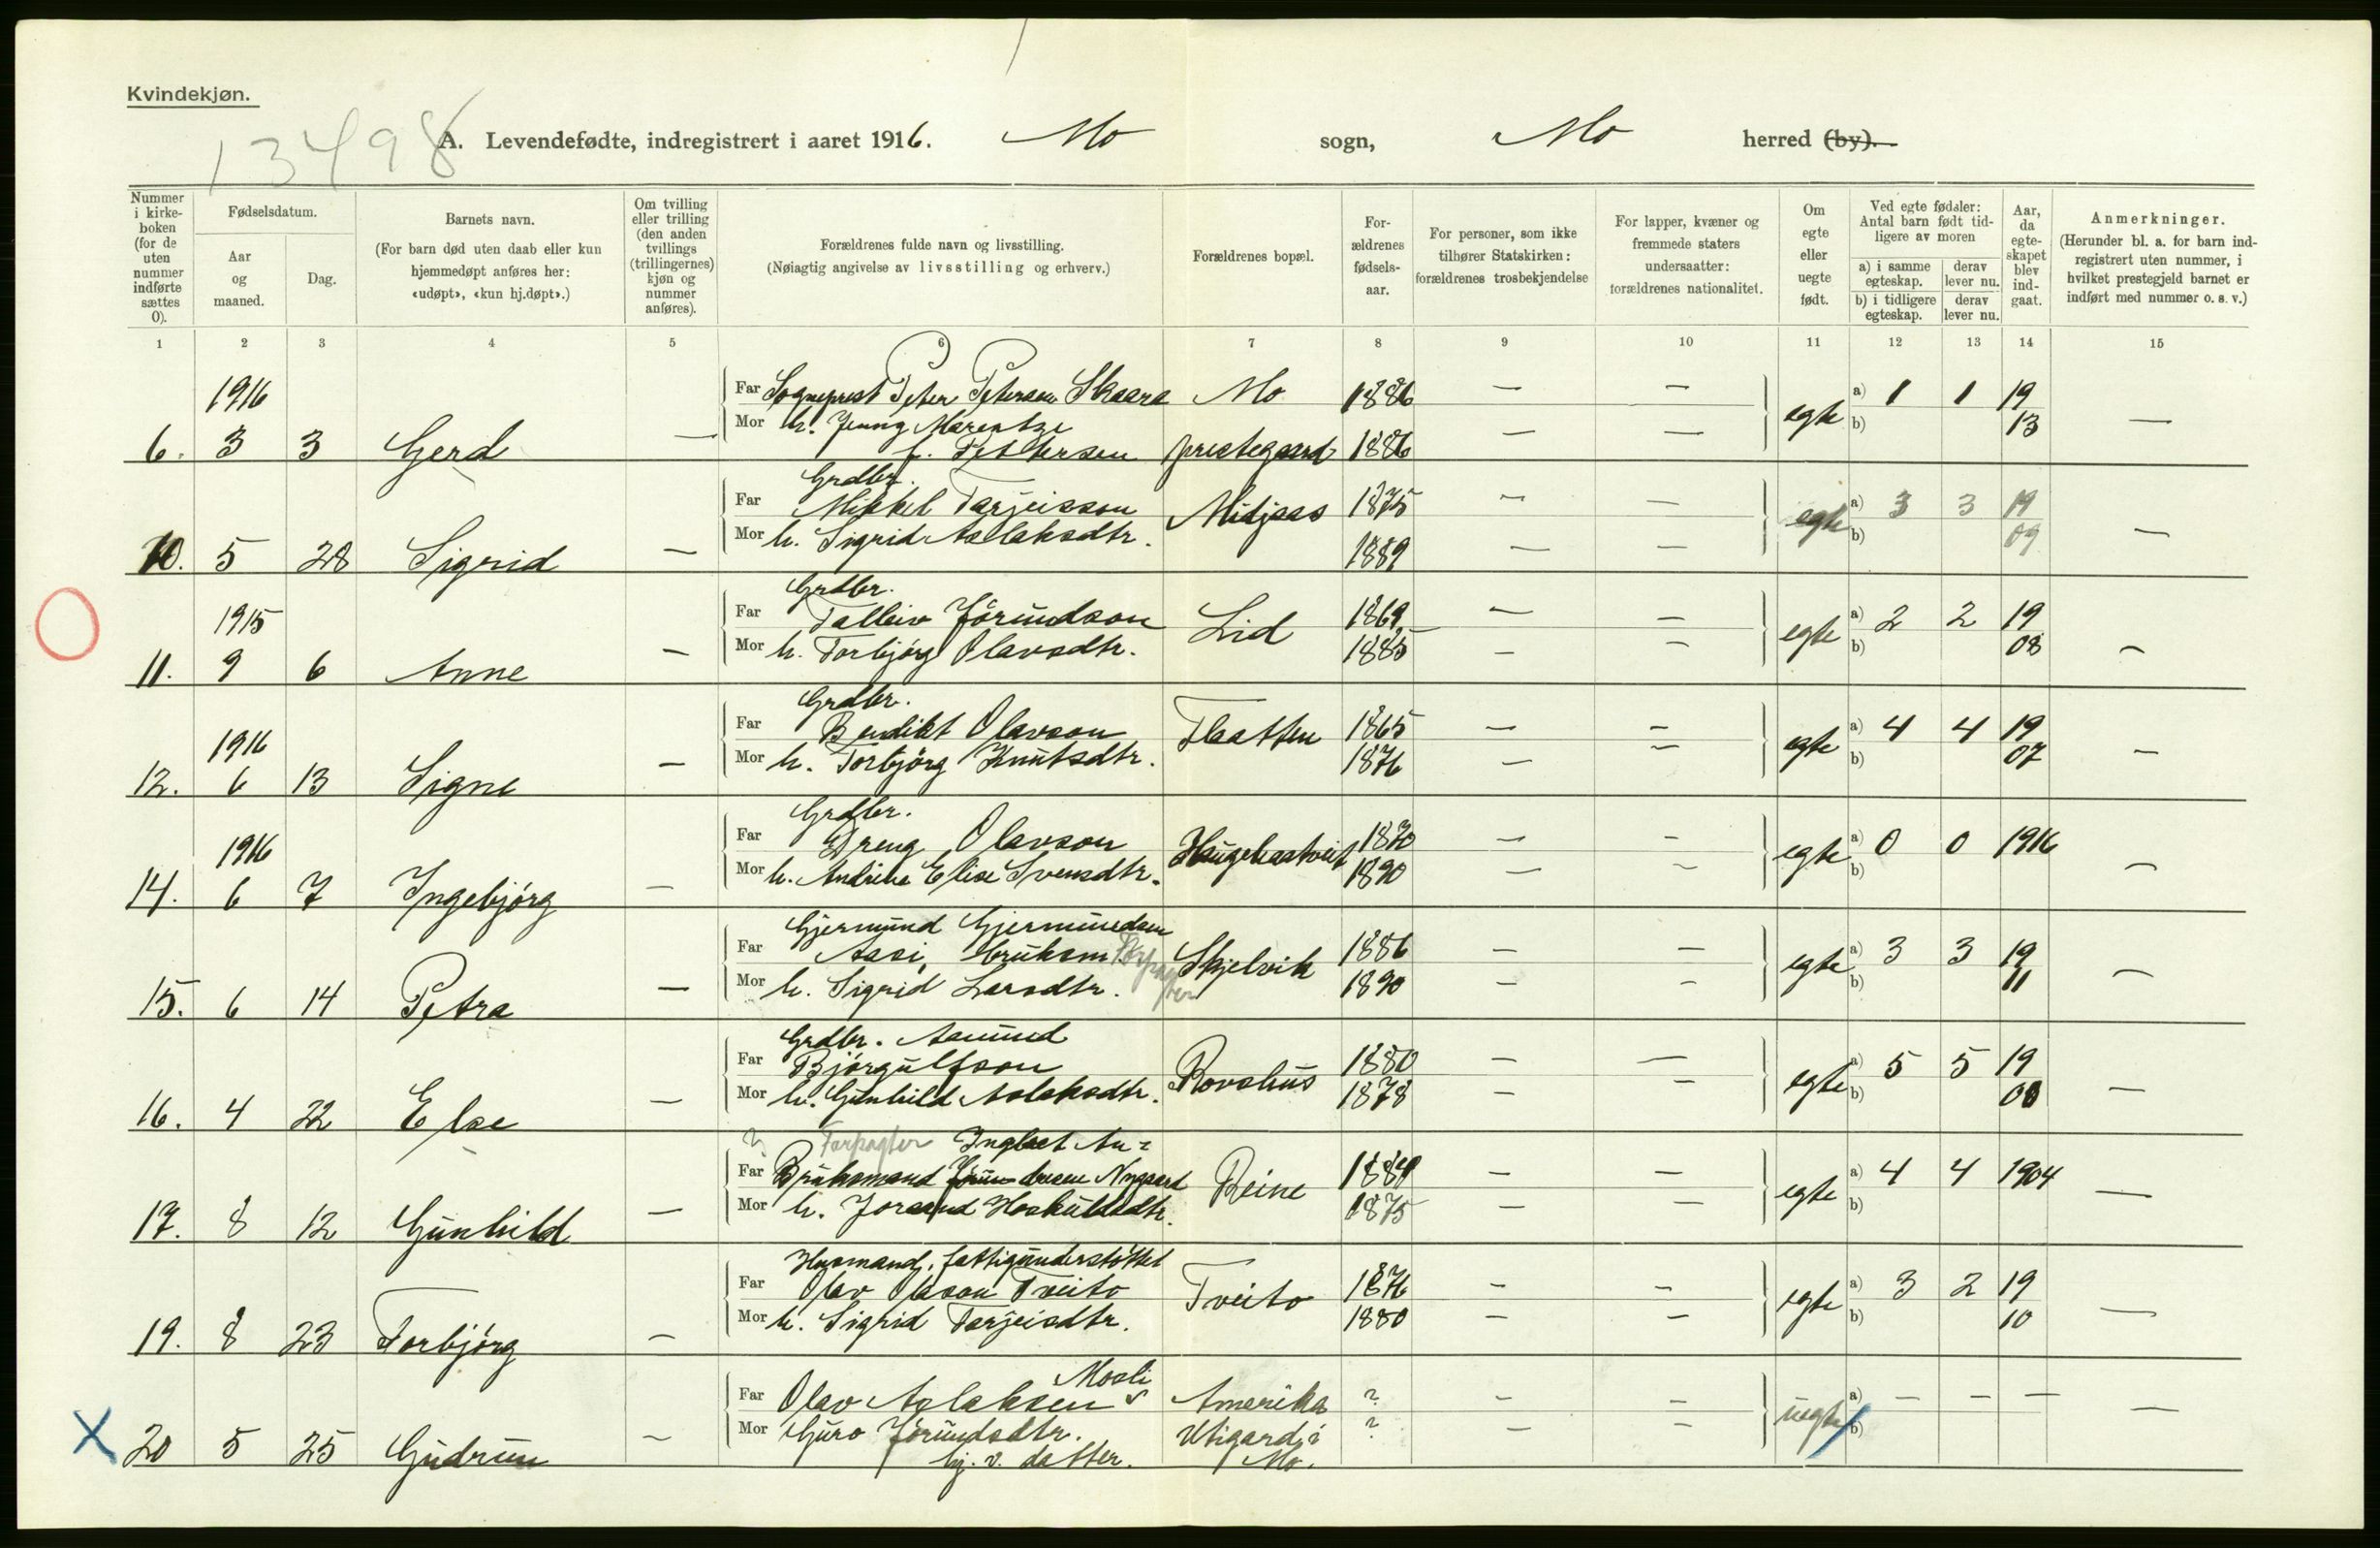 Kvindekjøn.
13498
A. Levendefødte, indregistrert i aaret 1916. Mo sogn, Mo herred (by).
Nummer i kirke-boken (for de uten nummer indførte sættes 0).
Fødselsdatum.
Aar og maaned.
Dag.
Barnets navn.
(For barn død uten daab eller kun hjemmedøpt anføres her: «udøpt», «kun hj.døpt».)
Om tvilling eller trilling (den anden tvillings (trillingernes) kjøn og nummer anføres).
Forældrenes fulde navn og livsstilling.
(Nøiagtig angivelse av livsstilling og erhverv.)
Forældrenes bopæl.
For-ældrenes fødsels-aar.
For personer, som ikke tilhører Statskirken: forældrenes trosbekjendelse
For lapper, kvæner og fremmede staters undersaatter: forældrenes nationalitet.
Om egte eller uegte født.
Ved egte fødsler: Antal barn født tid-ligere av moren
a) i samme egteskap. derav lever nu.
b) i tidligere egteskap. derav lever nu.
Aar, da egte-skapet blev ind-gaat.
Anmerkninger.
(Herunder bl. a. for barn ind-registrert uten nummer, i hvilket prestegjeld barnet er indført med nummer o. s. v.)
1 2 3 4 5 6 7 8 9 10 11 12 13 14 15
1916 Far Sogneprest Peter Petersen Skaara Mo 1886 — — egte a) 1 1 19
6. 3 3 Gerd — Mor h. Jenny Marentze f. Pettersen prestegaard 1886 — — b) 13 —
Grdbr.
Far Mikkel Tarjeisson Midjaas 1875 — — egte a) 3 3 19
10. 5 28 Sigrid — Mor h. Sigrid Aslaksdtr. 1889 — — b) 09 —
Grdbr.
1915 Far Talleiv Jørundson Lid 1869 — — egte a) 2 2 19
11. 9 6 Anne — Mor h. Torbjørg Olavsdtr. 1885 — — b) 08 —
Grdbr.
1916 Far Bendikt Olavson Flatten 1865 — — egte a) 4 4 19
12. 6 13 Signe — Mor h. Torbjørg Knutsdtr. 1876 — — b) 07 —
Grdbr.
1916 Far Dreng Olavson Haugekaatveit 1870 — — egte a) 0 0 1916
14. 6 7 Ingebjørg — Mor h. Andrika Elise Svensdtr. 1890 — — b) —
Gjermund Gjermundsen
Far Aasi, bruksm Forpagter Skjelvik 1886 — — egte a) 3 3 19
15. 6 14 Petra — Mor h. Sigrid Larsdtr. 1890 — — b) 11 —
Grdbr. Aamund
Far Bjørgulfson Rovshus 1880 — — egte a) 5 5 19
16. 4 22 Else — Mor h. Gunhild Aslaksdtr. 1878 — — b) 00 —
? Forpagter
Far Bruksmand Nygaard Reine 1884 — — egte a) 4 4 1904
17. 8 12 Gunhild — Mor h. Joraand Hoskuldsdtr. 1875 — — b) —
Husmand, fattigunderstøttet
Far Olav Olsson Tveito Tveito 1876 — — egte a) 3 2 19
19. 8 23 Torbjørg — Mor h. Sigrid Tarjeisdtr. 1880 — — b) 10 —
Far Olav Aslaksen Mosli Amerika ? — — uegte a) — — —
X 20 5 25 Gudrun — Mor Guro Jørundsdtr. hj. v. datter. Utigard i Mo. ? — — b) —